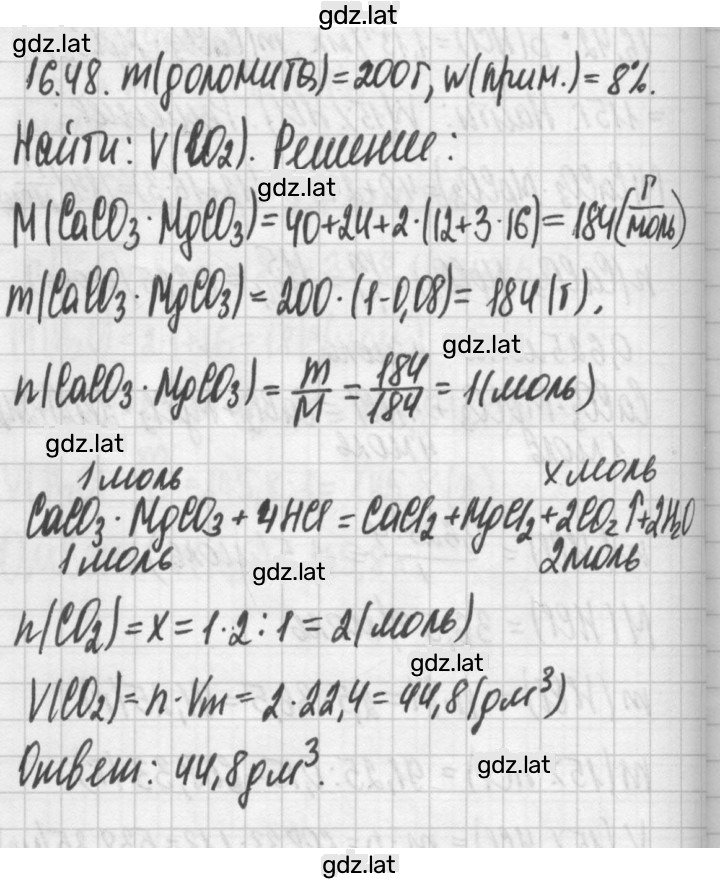 gdz.lat
gdz.lat
16.48. m(доломита)=200г, w(прим.)=8%.
Найти: V(CO₂). Решение:
gdz.lat
M(CaCO₃·MgCO₃)=40+24+2·(12+3·16)=184(г/моль)
m(CaCO₃·MgCO₃)=200·(1-0,08)=184(г).
gdz.lat
n(CaCO₃·MgCO₃)=m/M=184/184=1(моль)
gdz.lat
1моль x моль
CaCO₃·MgCO₃+4HCl=CaCl₂+MgCl₂+2CO₂↑+2H₂O
1моль 2моль
gdz.lat
n(CO₂)=x=1·2:1=2(моль)
gdz.lat
V(CO₂)=n·Vm=2·22,4=44,8(дм³)
Ответ: 44,8дм³.
gdz.lat
gdz.lat